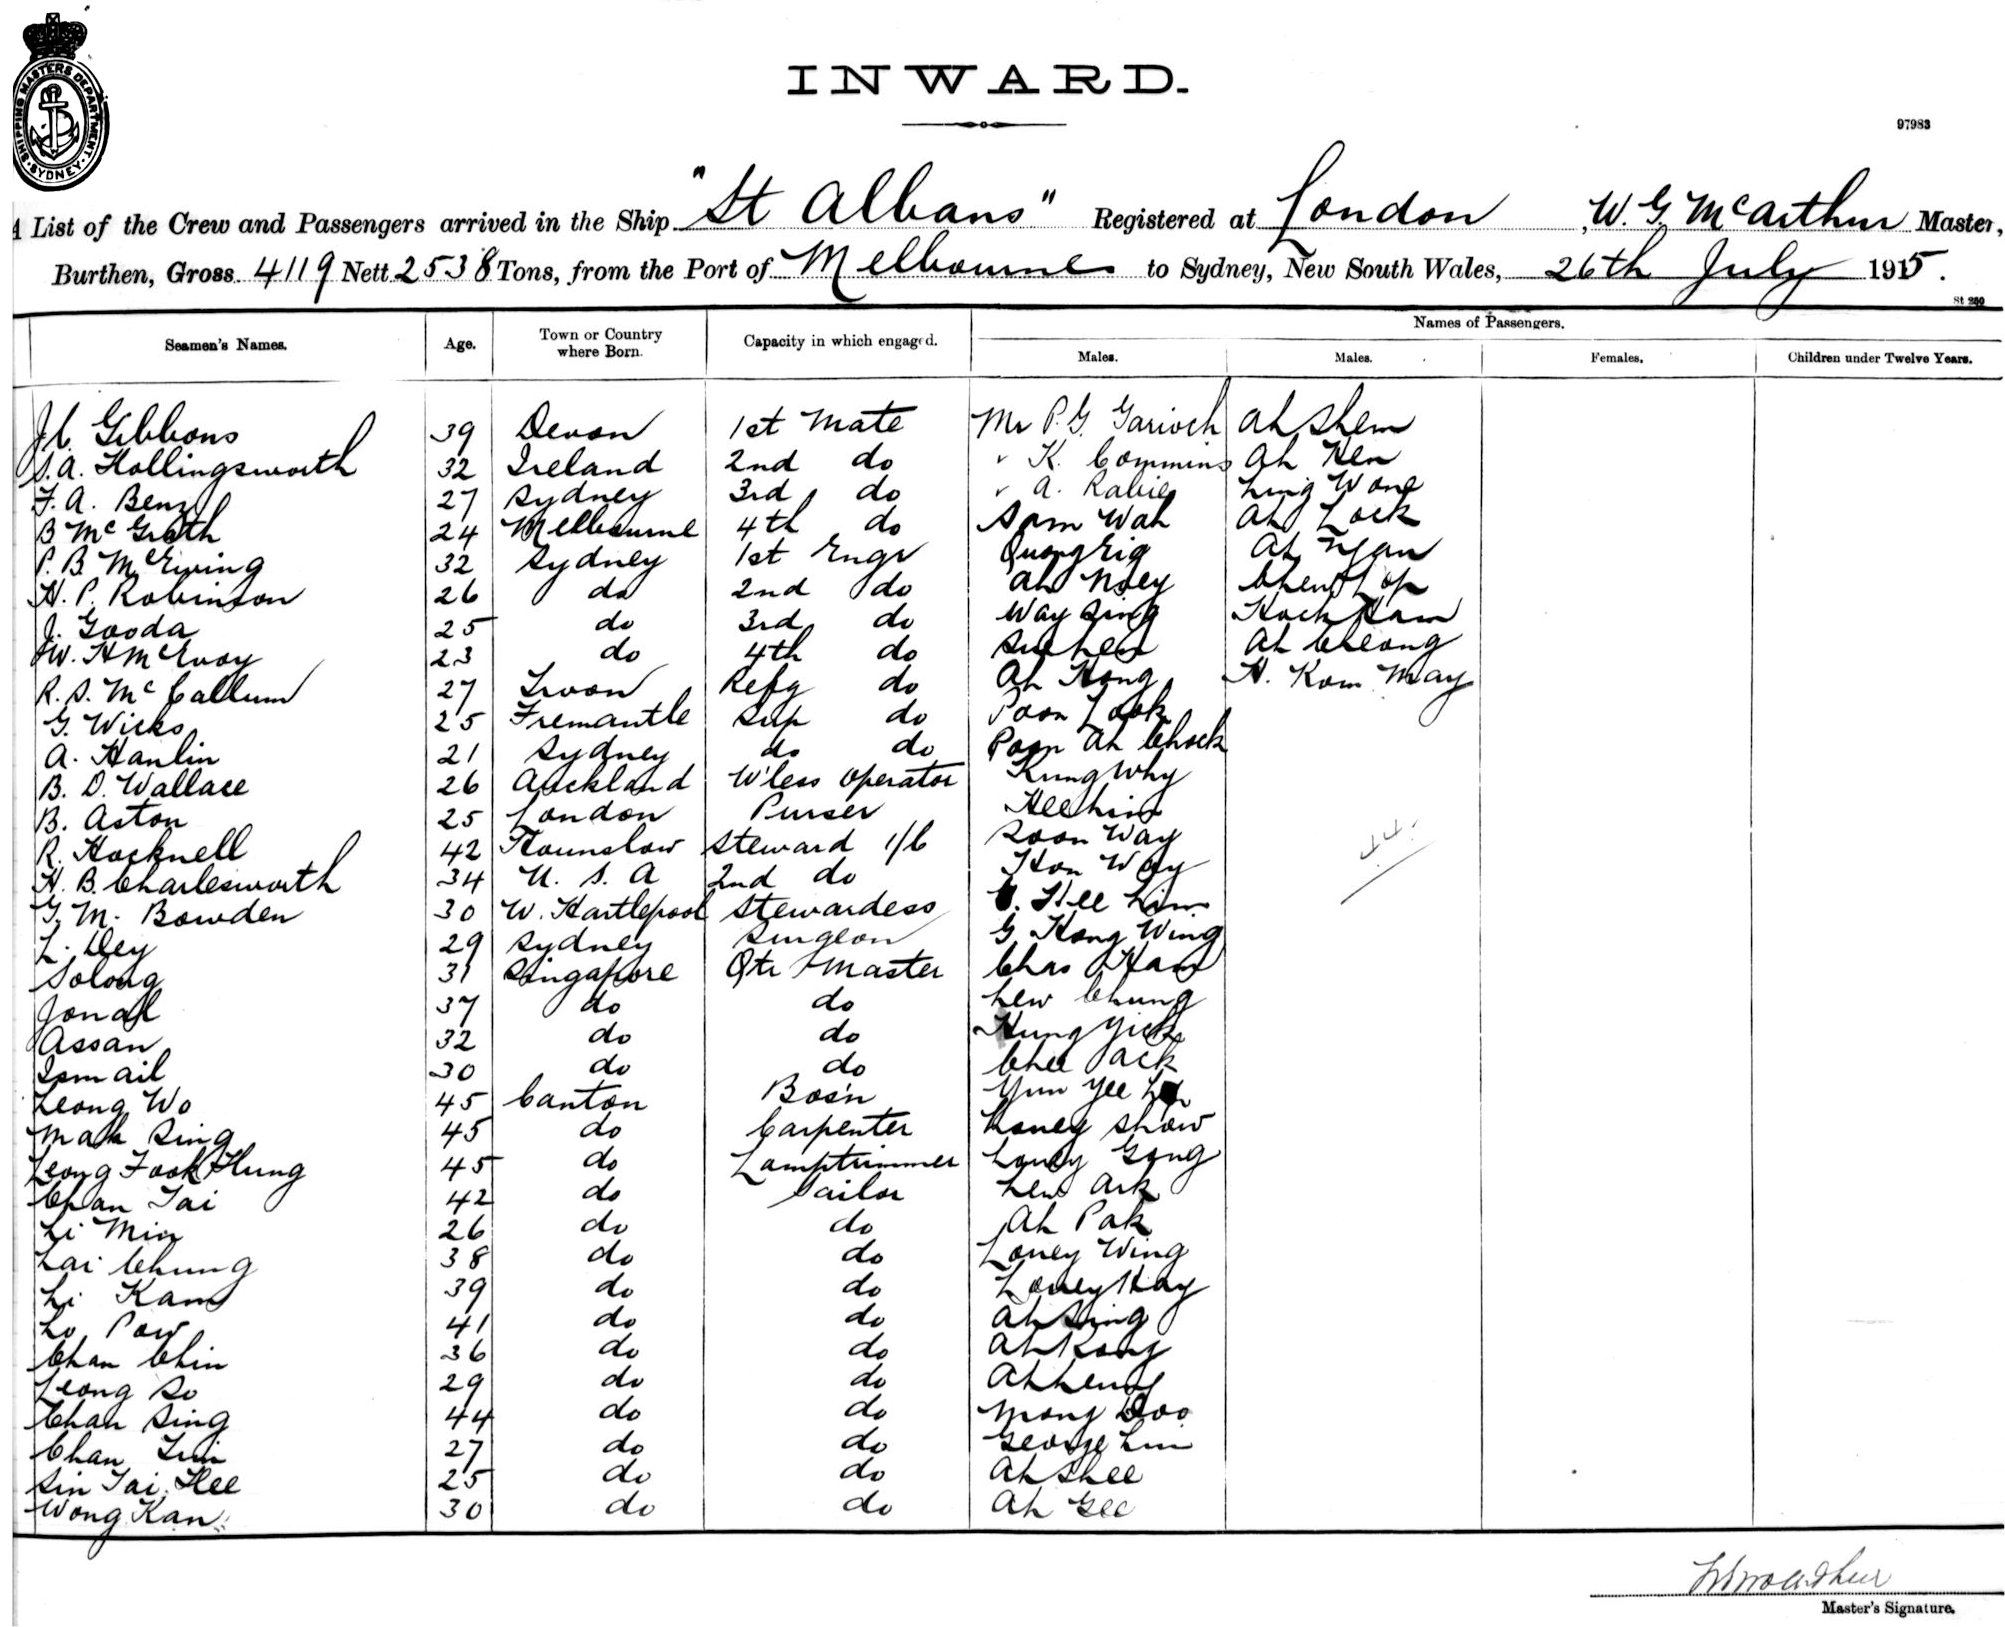 SHIPPING MASTERS DEPARTMENT · SYDNEY ·
INWARD.
97983
A List of the Crew and Passengers arrived in the Ship "St Albans" Registered at London, W. G. McArthur Master,
Burthen, Gross 4119 Nett 2538 Tons, from the Port of Melbourne to Sydney, New South Wales, 26th July 1915.
St 250
Names of Passengers.
Seamen's Names. Age. Town or Country where Born. Capacity in which engaged. Males. Males. Females. Children under Twelve Years.
Gibbons 39 Devon 1st Mate Mr P. G. Garioch Ah Shem
S. A. Hollingsworth 32 Ireland 2nd do " K. Commins Ah Ken
F. A. Benz 27 Sydney 3rd do " A. Rabie Ling Wong
B McGrath 24 Melbourne 4th do Sam Wah Ah Lock
P. B. McEwing 32 Sydney 1st Engr Ah
H. P. Robinson 26 do 2nd do Ah Noey
J. Gooda 25 do 3rd do Way Sing Hock Ham
W. H McEvoy 23 do 4th do Ah Cheong
R. S. McCallum 27 Refg do Ah Hong H. Kom May
G. Wicks 25 Fremantle Sup do Poon Look
A. Hanlin 21 Sydney do do Poon Ah Chock
B. D. Wallace 26 Auckland W'less Operator Kung Why
B. Aston 25 London Purser
R. Hocknell 42 Hounslow Steward i/c Soon Way
H. B. Charlesworth 34 U. S. A 2nd do Hon Way
G. M. Bowden 30 W. Hartlepool Stewardess Hee
L. Dey 29 Sydney Surgeon G Hong Wing
Solong 31 Singapore Qtr Master Chas Ham
Jonal 37 do do Lew Chung
Assan 32 do do Hung Yick
Ismail 30 do do Chee Jack
Leong Wo 45 Canton Bos'n Yum Yee
Mak Sing 45 do Carpenter Show
Leong Fook Hung 45 do Lamptrimmer Gong
Chan Tai 42 do Sailor Lew Ark
Li Min 26 do do Ah Pak
Lai Chung 38 do do Loney Wing
Li Kam 39 do do Loney Hay
Lo Pow 41 do do Ah Sing
Chan Chin 36 do do Ah Kong
Leong So 29 do do
Chan Sing 44 do do Mong Doo
Chan 27 do do George Lin
Sin Tai Hee 25 do do Ah Shee
Wong Kan 30 do do Ah Gee
44
Master's Signature.